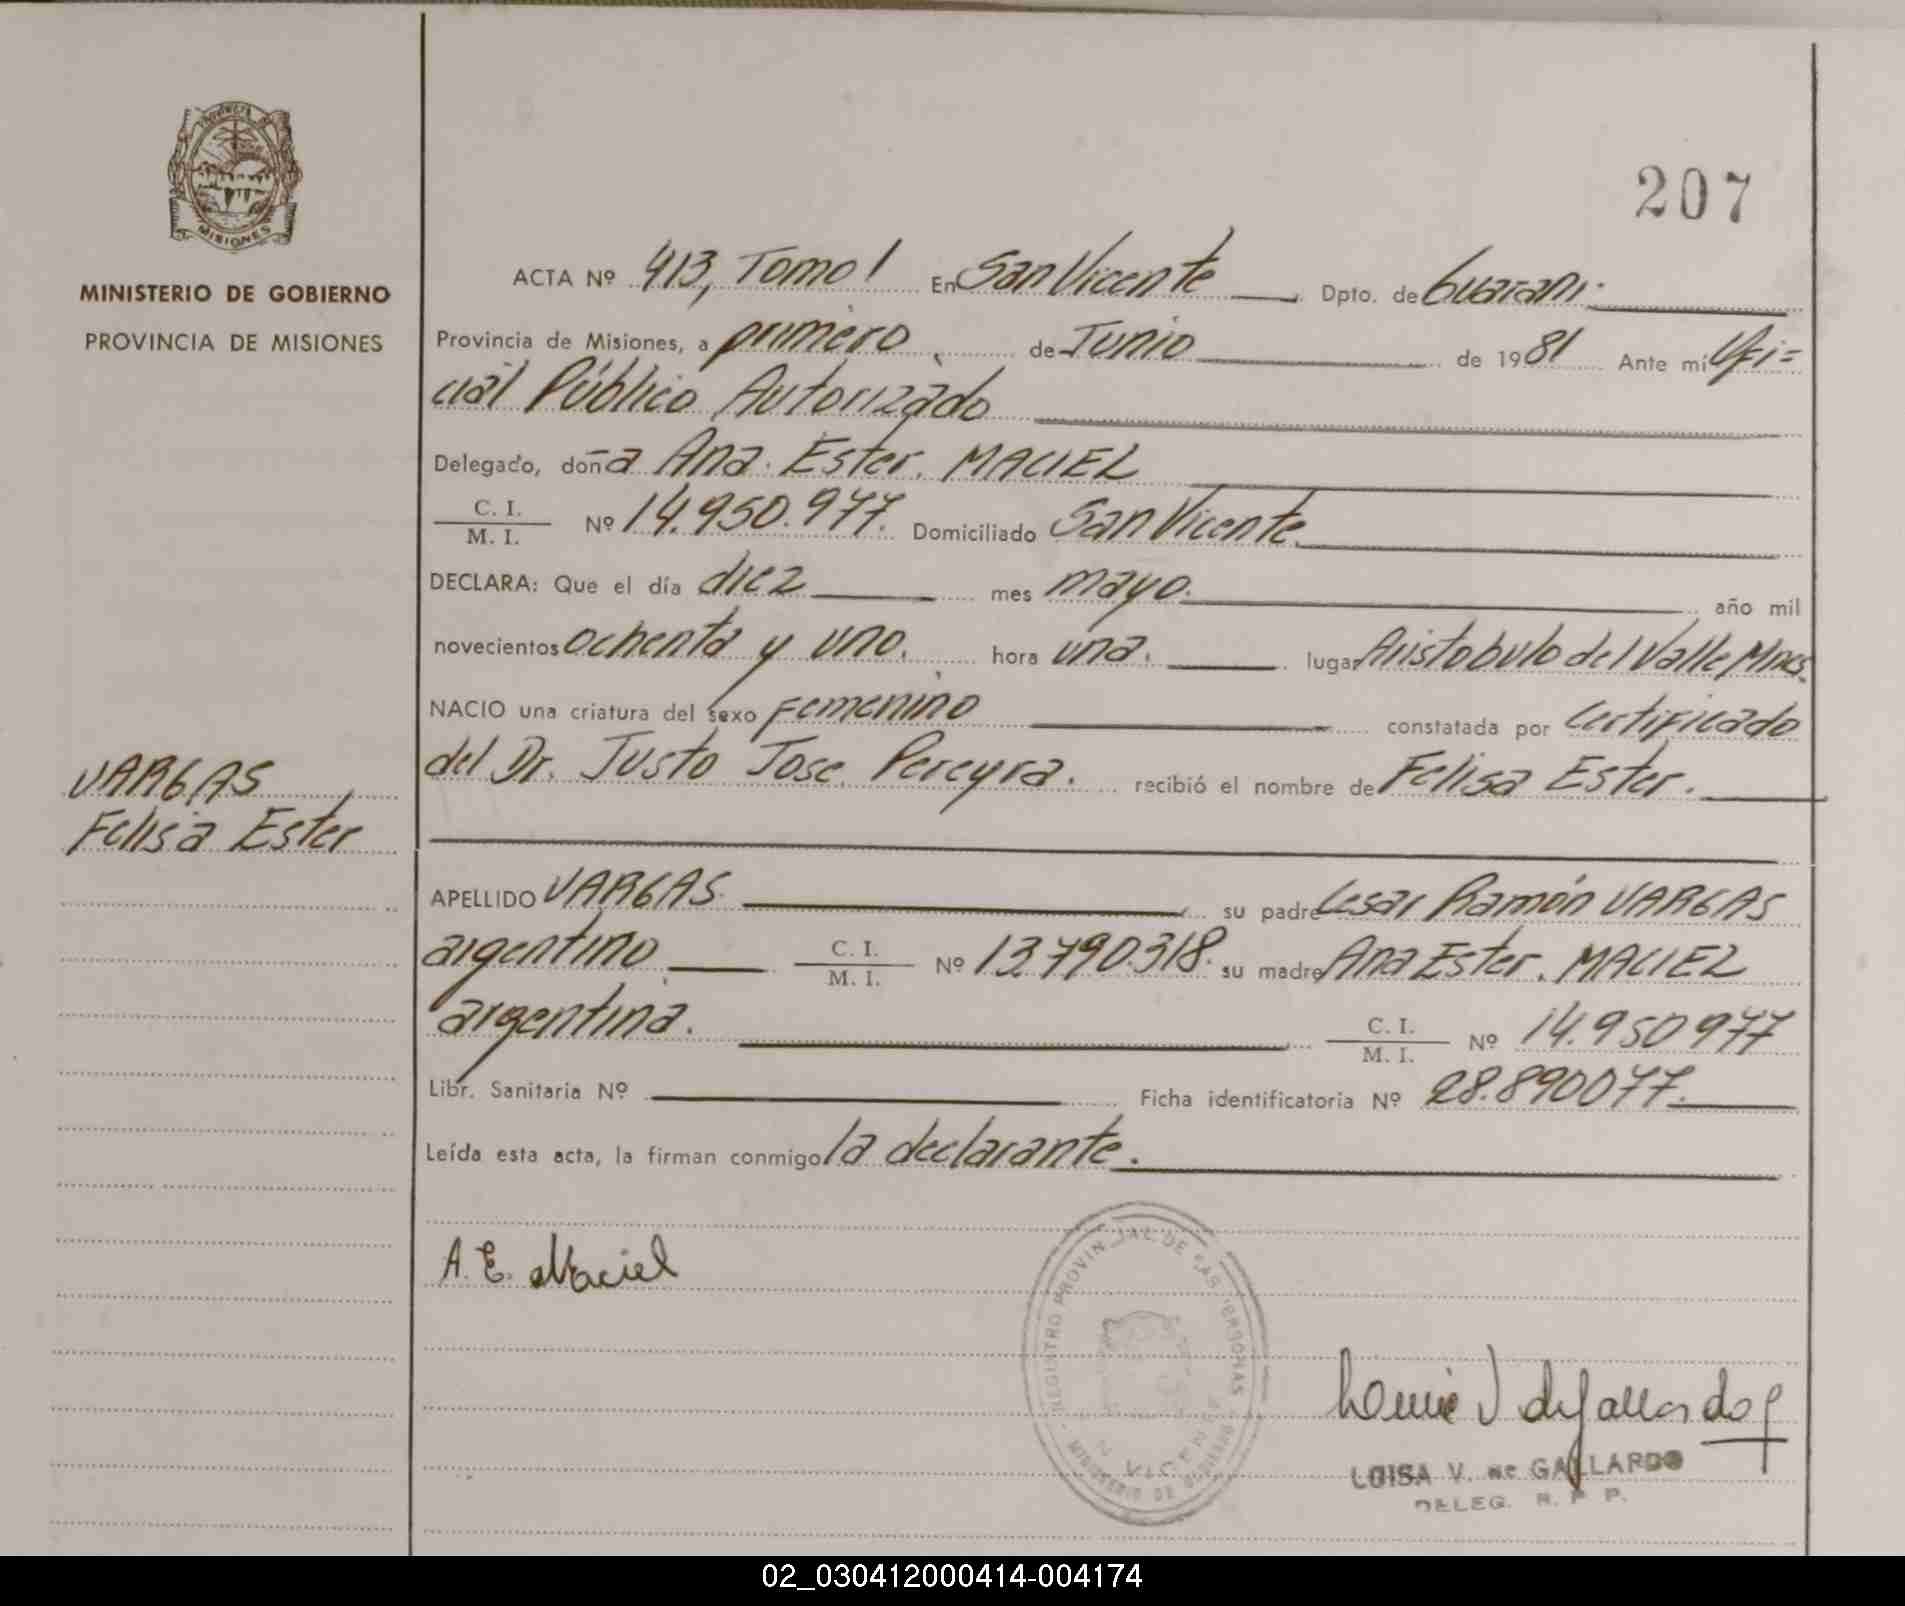 207
MINISTERIO DE GOBIERNO
PROVINCIA DE MISIONES
MISIONES
VARGAS
Felisa Ester
ACTA Nº 413, Tomo I En San Vicente Dpto. de Guarani.
Provincia de Misiones, a primero de Junio de 1981 Ante mí Ofi=
cial Público Autorizado
Delegado, doña Ana Ester. MACIEL
C. I. / M. I. Nº 14.950.977. Domiciliado San Vicente.
DECLARA: Que el día diez mes mayo. año mil
novecientos ochenta y uno. hora una. lugar Aristobulo del Valle Mnes.
NACIO una criatura del sexo Femenino constatada por certificado
del Dr. Justo Jose Pereyra. recibió el nombre de Felisa Ester.
APELLIDO VARGAS su padre Cesar Ramón VARGAS
argentino C. I. / M. I. Nº 13.790.318. su madre Ana Ester. MACIEL
argentina. C. I. / M. I. Nº 14.950977
Libr. Sanitaria Nº Ficha identificatoria Nº 28.890077.
Leída esta acta, la firman conmigo la declarante.
A. E. Maciel
REGISTRO PROVINCIAL DE LAS PERSONAS
MINISTERIO DE GOBIERNO
LUISA V. de GALLARDO
DELEG. R. P. P.
02_030412000414-004174